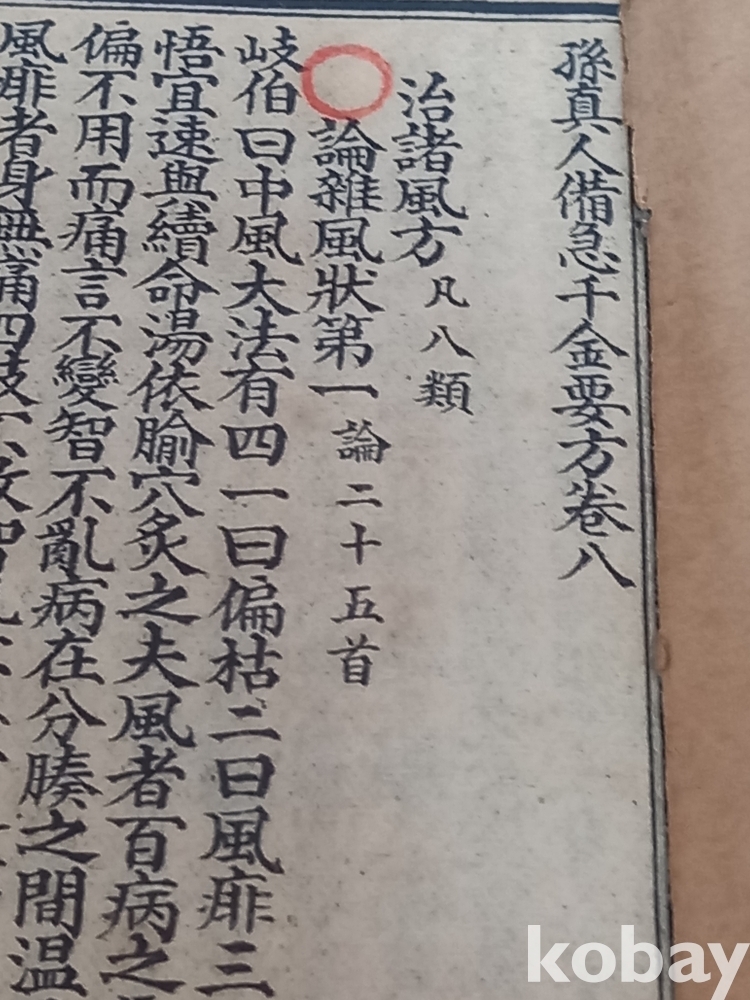 孫真人備急千金要方卷八
治諸風方凡八類
論雜風狀第一論二十五首
岐伯曰中風大法有四一曰偏枯二曰風痱三
悟宜速與續命湯依腧穴灸之夫風者百病之
偏不用而痛言不變智不亂病在分腠之間溫
風痱者身無痛四肢不收智亂
kobay